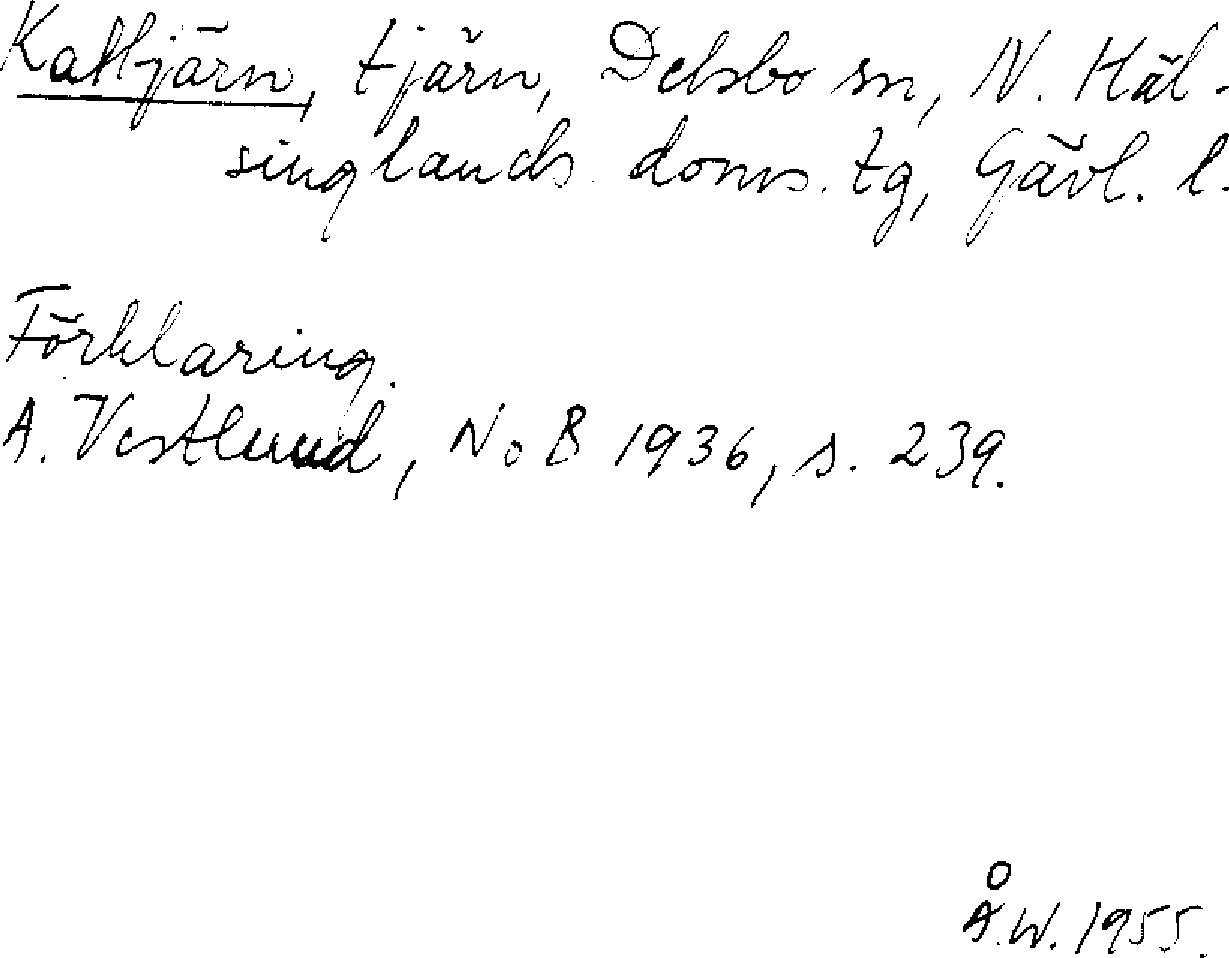 Kattjärn, tjärn, Delsbo sn, N. Häl-
singlands doms. tg, Gävl. l.
Förklaring.
A. Vestlund, NoB 1936, s. 239.
Å.W. 1955.